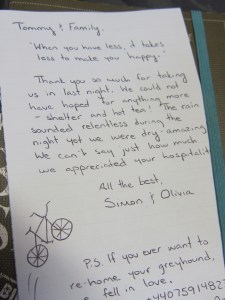 Tommy & Family.
"When you have less, it takes
less to make you happy."
Thank you so much for taking
us in last night. We could not
have hoped for anything more
- shelter and hot tea! The rain
sounded relentless during the
night yet we were dry - amazing.
We can't say just how much
we appreciated your hospitalit
All the best,
Simon & Olivia
P.S. If you ever want to
re-home your greyhound,
fell in love.